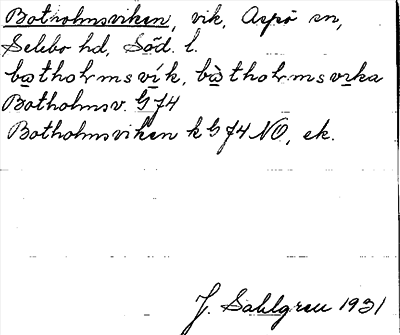 Botholmsviken, vik, Aspö sn,
Selebo hd, Söd. l.
bo̱tholmsvík, bò̱tholmsvıka
Botholmsv. G 74
Botholmsviken k G 74 NO, ek.
J. Sahlgren 1931